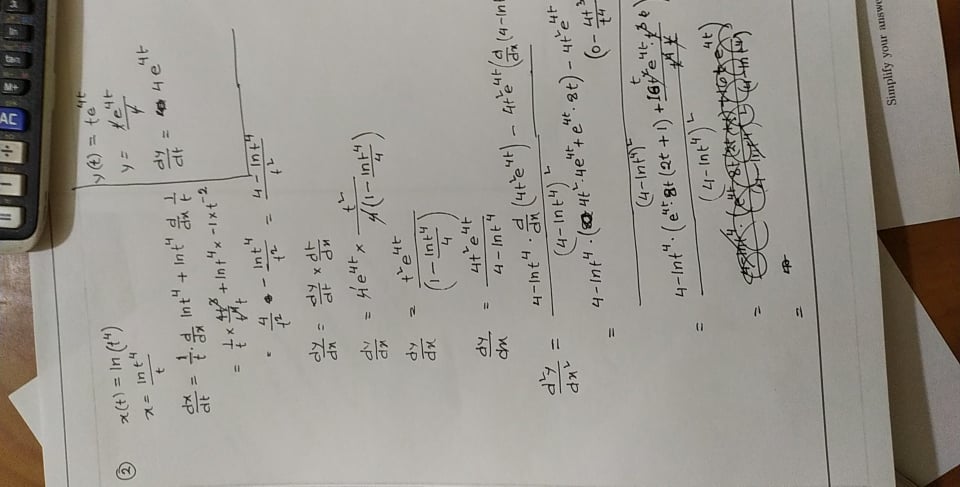 AC
M+
②
x(t) = ln(t⁴)
x = ln t⁴ / t
dx/dt = 1/t · d/dx ln t⁴ + ln t⁴ d/dx 1/t
= 1/t × 4t³/t⁴ + ln t⁴ × -1 × t⁻²
= 4/t² - ln t⁴/t² = (4 - ln t⁴)/t²
y(t) = te⁴ᵗ
y = te⁴ᵗ/t
dy/dt = 4e⁴ᵗ
dy/dx = dy/dt × dt/dx
dy/dx = 4e⁴ᵗ × t²/(4(1 - ln t⁴/4))
dy/dx = t²e⁴ᵗ/(1 - ln t⁴/4)
dy/dx = 4t²e⁴ᵗ/(4 - ln t⁴)
d²y/dx² = (4 - ln t⁴ · d/dx (4t²e⁴ᵗ) - 4t²e⁴ᵗ (d/dx (4 - ln t/(4 - ln t⁴)²
= (4 - ln t⁴ · (4t² · 4e⁴ᵗ + e⁴ᵗ · 8t) - 4t²e⁴ᵗ (0 - 4t³/t⁴/(4 - ln t⁴)²
= (4 - ln t⁴ · (e⁴ᵗ · 8t (2t + 1) + 16t² e⁴ᵗ · t³/t⁴/(4 - ln t⁴)²
=
=
Simplify your answe